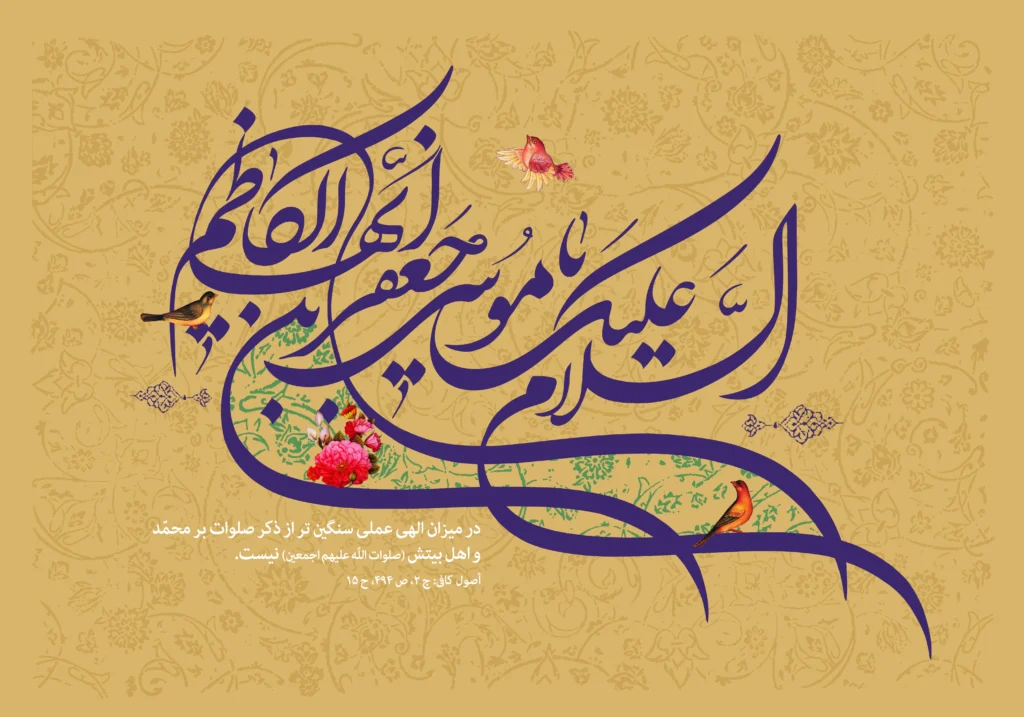 السلام علیک یا موسی بن جعفر ایها الکاظم
در میزان الهی عملی سنگین تر از ذکر صلوات بر محمّد
و اهل بیتش (صلوات الله علیهم اجمعین) نیست.
اصول کافی: ج ۲، ص ۴۹۴، ح ۱۵